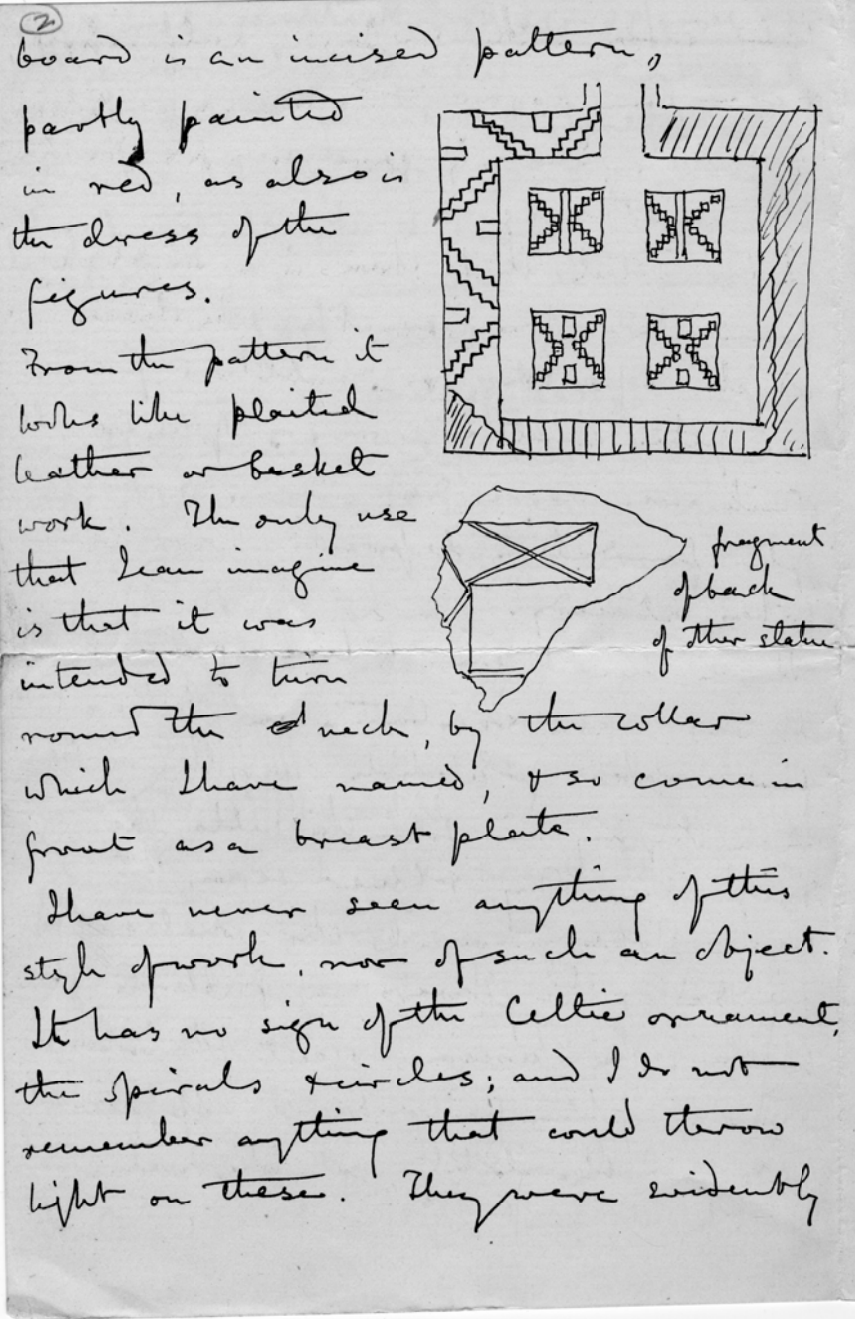 2
board is an incised pattern,
partly painted
in red, as also is
the dress of the
figures.
From the pattern it
looks like plaited
leather or basket
work. The only use
that I can imagine
is that it was
intended to turn
round the neck, by the collar
which I have named, & so come in
front as a breast plate.
I have never seen anything of this
style of work, nor of such an object.
It has no sign of the Celtic ornament,
the spirals & circles; and I do not
remember anything that could throw
light on these. They were evidently
fragment
of back
of other statue